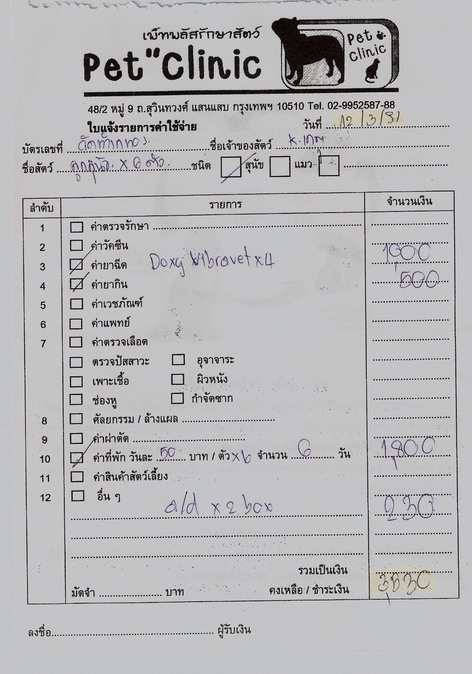 เพ็ทพลัสรักษาสัตว์
Pet"Clinic
Pet
Clinic
48/2 หมู่ 9 ถ.สุวินทวงศ์ แสนแสบ กรุงเทพฯ 10510 Tel. 02-9952587-88
ใบแจ้งรายการค่าใช้จ่าย วันที่ 12/3/51
บัตรเลขที่ ชื่อเจ้าของสัตว์ K.
ชื่อสัตว์ x 6 ตัว ชนิด สุนัข แมว
ลำดับ รายการ จำนวนเงิน
1 ค่าตรวจรักษา
2 ค่าวัคซีน 1000
3 ค่ายาฉีด Doxy Vibravet x4
4 ค่ายากิน 500
5 ค่าเวชภัณฑ์
6 ค่าแพทย์
7 ค่าตรวจเลือด
ตรวจปัสสาวะ อุจจาระ
เพาะเชื้อ ผิวหนัง
ช่องหู กำจัดซาก
8 ศัลยกรรม / ล้างแผล
9 ค่าผ่าตัด
10 ค่าที่พัก วันละ 50 บาท / ตัว x6 จำนวน 6 วัน 1,800
11 ค่าสินค้าสัตว์เลี้ยง
12 อื่น ๆ a/d x 2 box 230
รวมเป็นเงิน
มัดจำ บาท คงเหลือ / ชำระเงิน 3530
ลงชื่อ ผู้รับเงิน